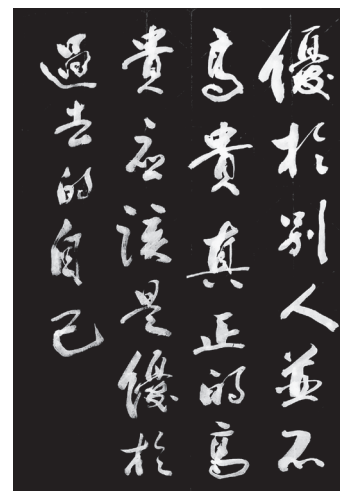 優於別人並不
高貴真正的高
貴應該是優於
過去的自己